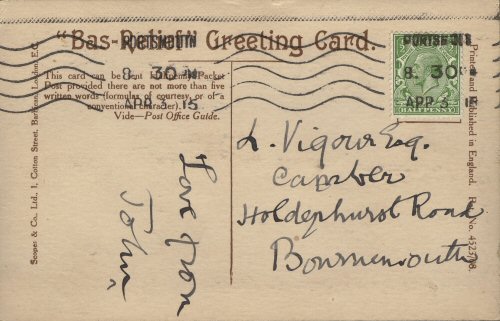 "Bas-Relief" Greeting Card.
This card can be sent Halfpenny Packet
Post provided there are not more than five
written words (formulas of courtesy, or of a
conventional character).
Vide—Post Office Guide.
PORTSMOUTH
8. 30
APR 3 15
PORTSMOUTH
8. 30
APR 3 15
HALFPENNY
Love from
John
L. Vigour Esq.
Holdephurst Road
Bournemouth
Scopes & Co., Ltd., 1, Cotton Street, Barbican, London, E.C.
Printed and Published in England. Rd. No.